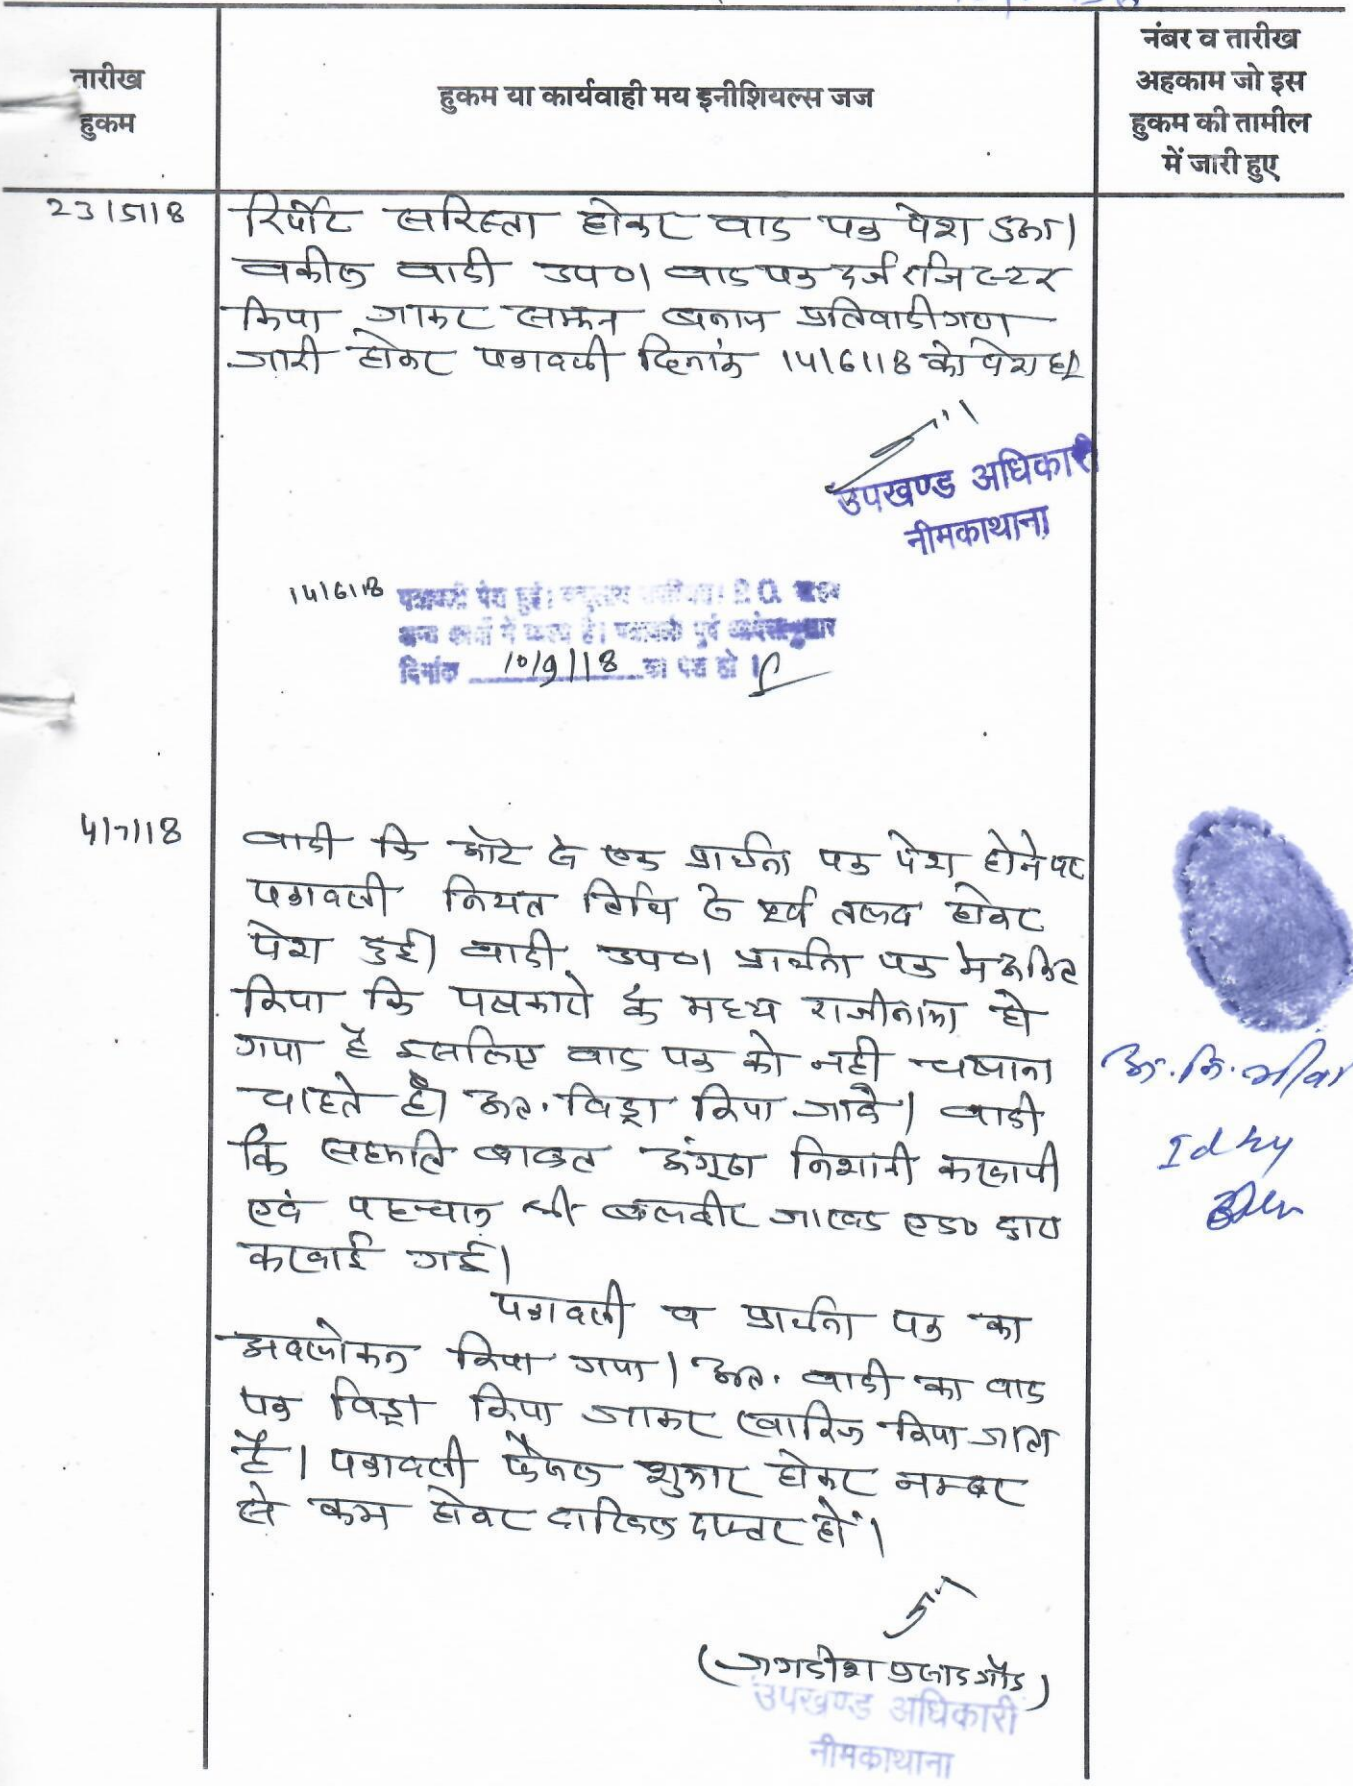 तारीख
हुकम
हुकम या कार्यवाही मय इनीशियल्स जज
नंबर व तारीख
अहकाम जो इस
हुकम की तामील
में जारी हुए
23/5/18
रिर्पोट सरिस्ता होकर वाद पत्र पेश हुआ।
वकील वादी उप०। वाद पत्र दर्ज रजिस्टर
किया जाकर सम्मन बनाम प्रतिवादीगण
जारी होकर पत्रावली दिनांक 14/6/18 को पेश हो
उपखण्ड अधिकारी
नीमकाथाना
14/6/18 पत्रावली पेश हुई। P.O. साहब
अन्य कार्यो में व्यस्त है। पत्रावली पूर्व आदेशानुसार
दिनांक 10/9/18 को पेश हो।
4/7/18
वादी कि ओर से एक प्रार्थना पत्र पेश होने पर
पत्रावली नियत तिथि से पूर्व तलब होकर
पेश हुई। वादी उप०। प्रार्थना पत्र मे अंकित
किया कि पक्षकारो के मध्य राजीनामा हो
गया है इसलिए वाद पत्र को नही चलाना
चाहते है। अतः विड्रा किया जावे। वादी
कि सहमति बाबत अंगूठा निशानी करवायी
एवं पहचान श्री बलबीर जाखड एड० द्वारा
करवाई गई।
पत्रावली व प्रार्थना पत्र का
अवलोकन किया गया। अतः वादी का वाद
पत्र विड्रा किया जाकर खारिज किया जाता
है। पत्रावली फैसल शुमार होकर नम्बर
से कम होकर दाखिल दफ्तर हो।
अं. नि.
Id by
(जगदीश प्रसाद गौड)
उपखण्ड अधिकारी
नीमकाथाना